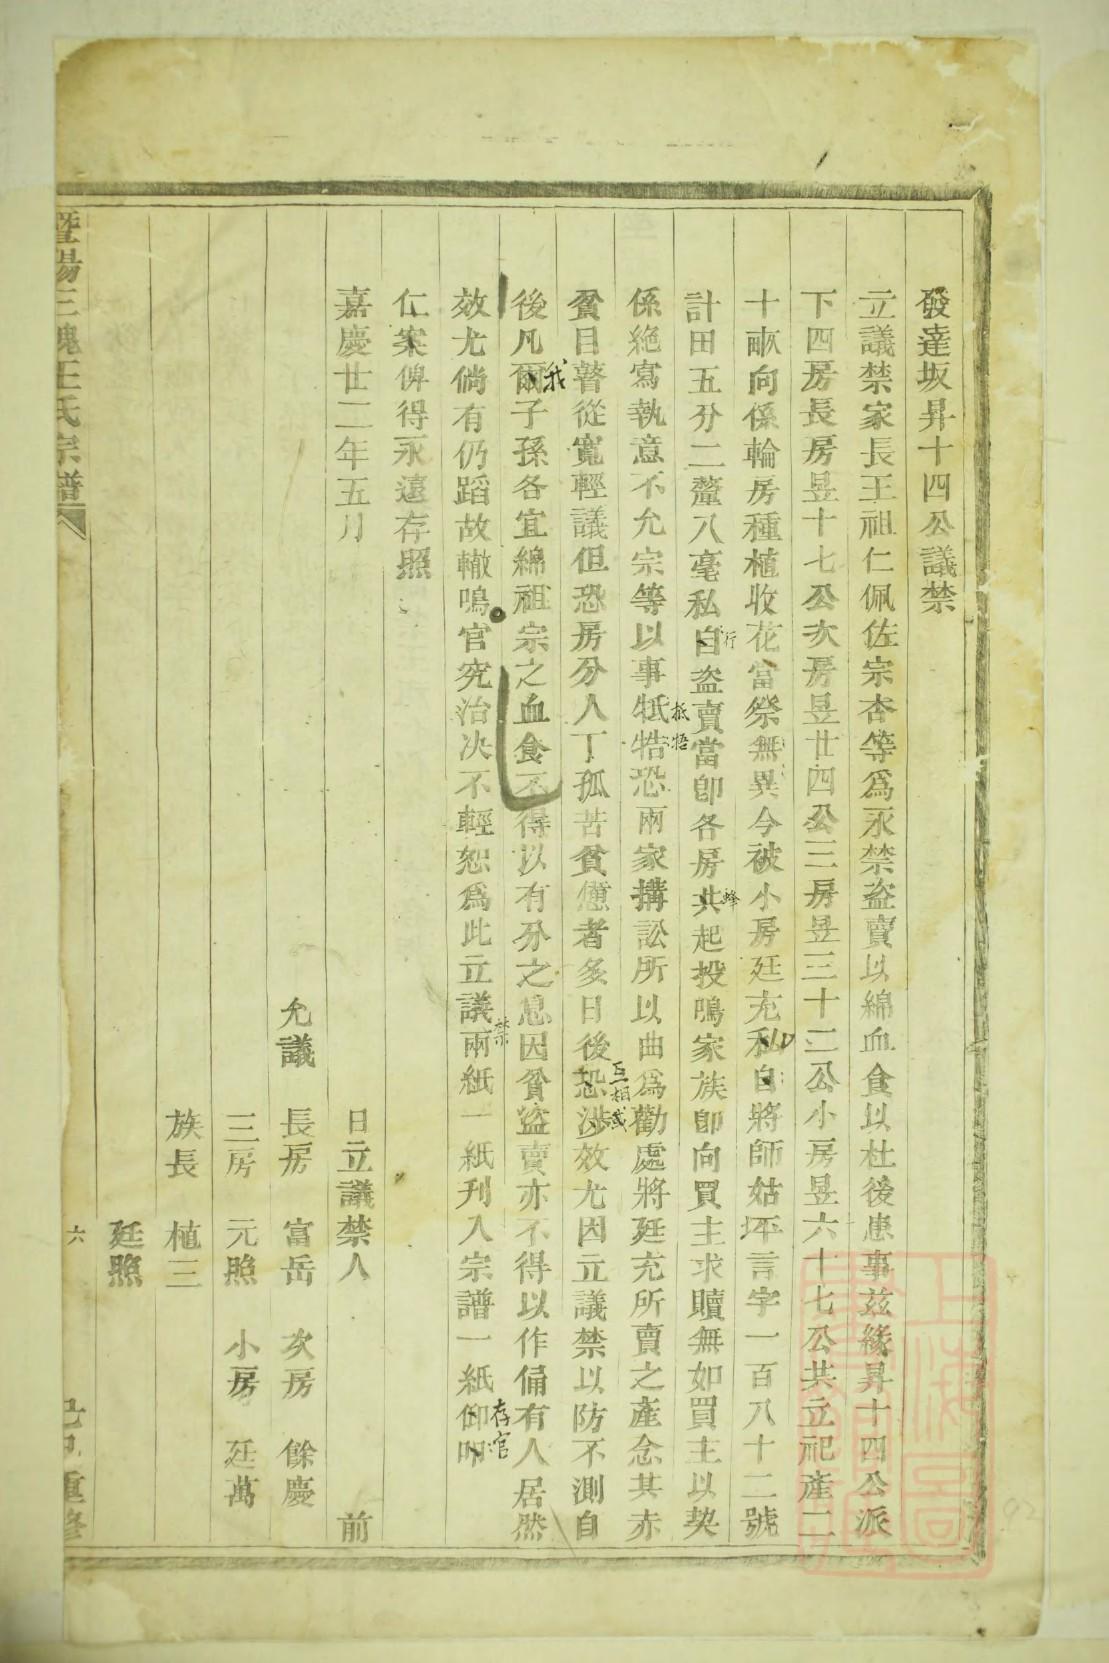 發達坂昇十四公議禁
立議禁家長王祖仁佩佐宗杏等爲永禁盜賣以綿血食以杜後患事茲緣昇十四公派
下四房長房昱十七公次房昱廿四公三房昱三十二公小房昱六十七公共立祀產二
十畝向係輪房種植收花當祭無異今被小房廷充私自將師姑坪言字一百八十二號
計田五分二釐八毫私自盜賣當卽各房共起投鳴家族卽向買主求贖無如買主以契
行
蜂
係絶寫執意不允宗等以事牴牾恐兩家搆訟所以曲爲勸處將廷充所賣之產念其赤
抵牾
貧目瞽從寬輕議但恐房分人丁孤苦貧憊者多日後恐涉效尤因立議禁以防不測自
互相或
後凡爾子孫各宜綿祖宗之血食不得以有分之息因貧盜賣亦不得以作俑有人居然
我
效尤倘有仍蹈故轍鳴官究治决不輕恕爲此立議兩紙一紙刊入宗譜一紙仰叩
禁
存官
仁案俾得永遠存照
嘉慶廿二年五月 日立議禁人 前
允議 長房 富岳 次房 餘慶
三房 元照 小房 廷萬
族長 植三
廷照
暨陽三槐王氏宗譜 六 重修
92